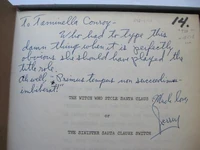 To Tammella Conroy- 14.
Who had to type this
damn thing when it is perfectly
obvious she should have played the
title role.
Ah well - "Primus tempus non succeedimus-
Much love
THE WITCH WHO STOLE SANTA CLAUS
or
THE SINISTER SANTA CLAUSE CAPTOR